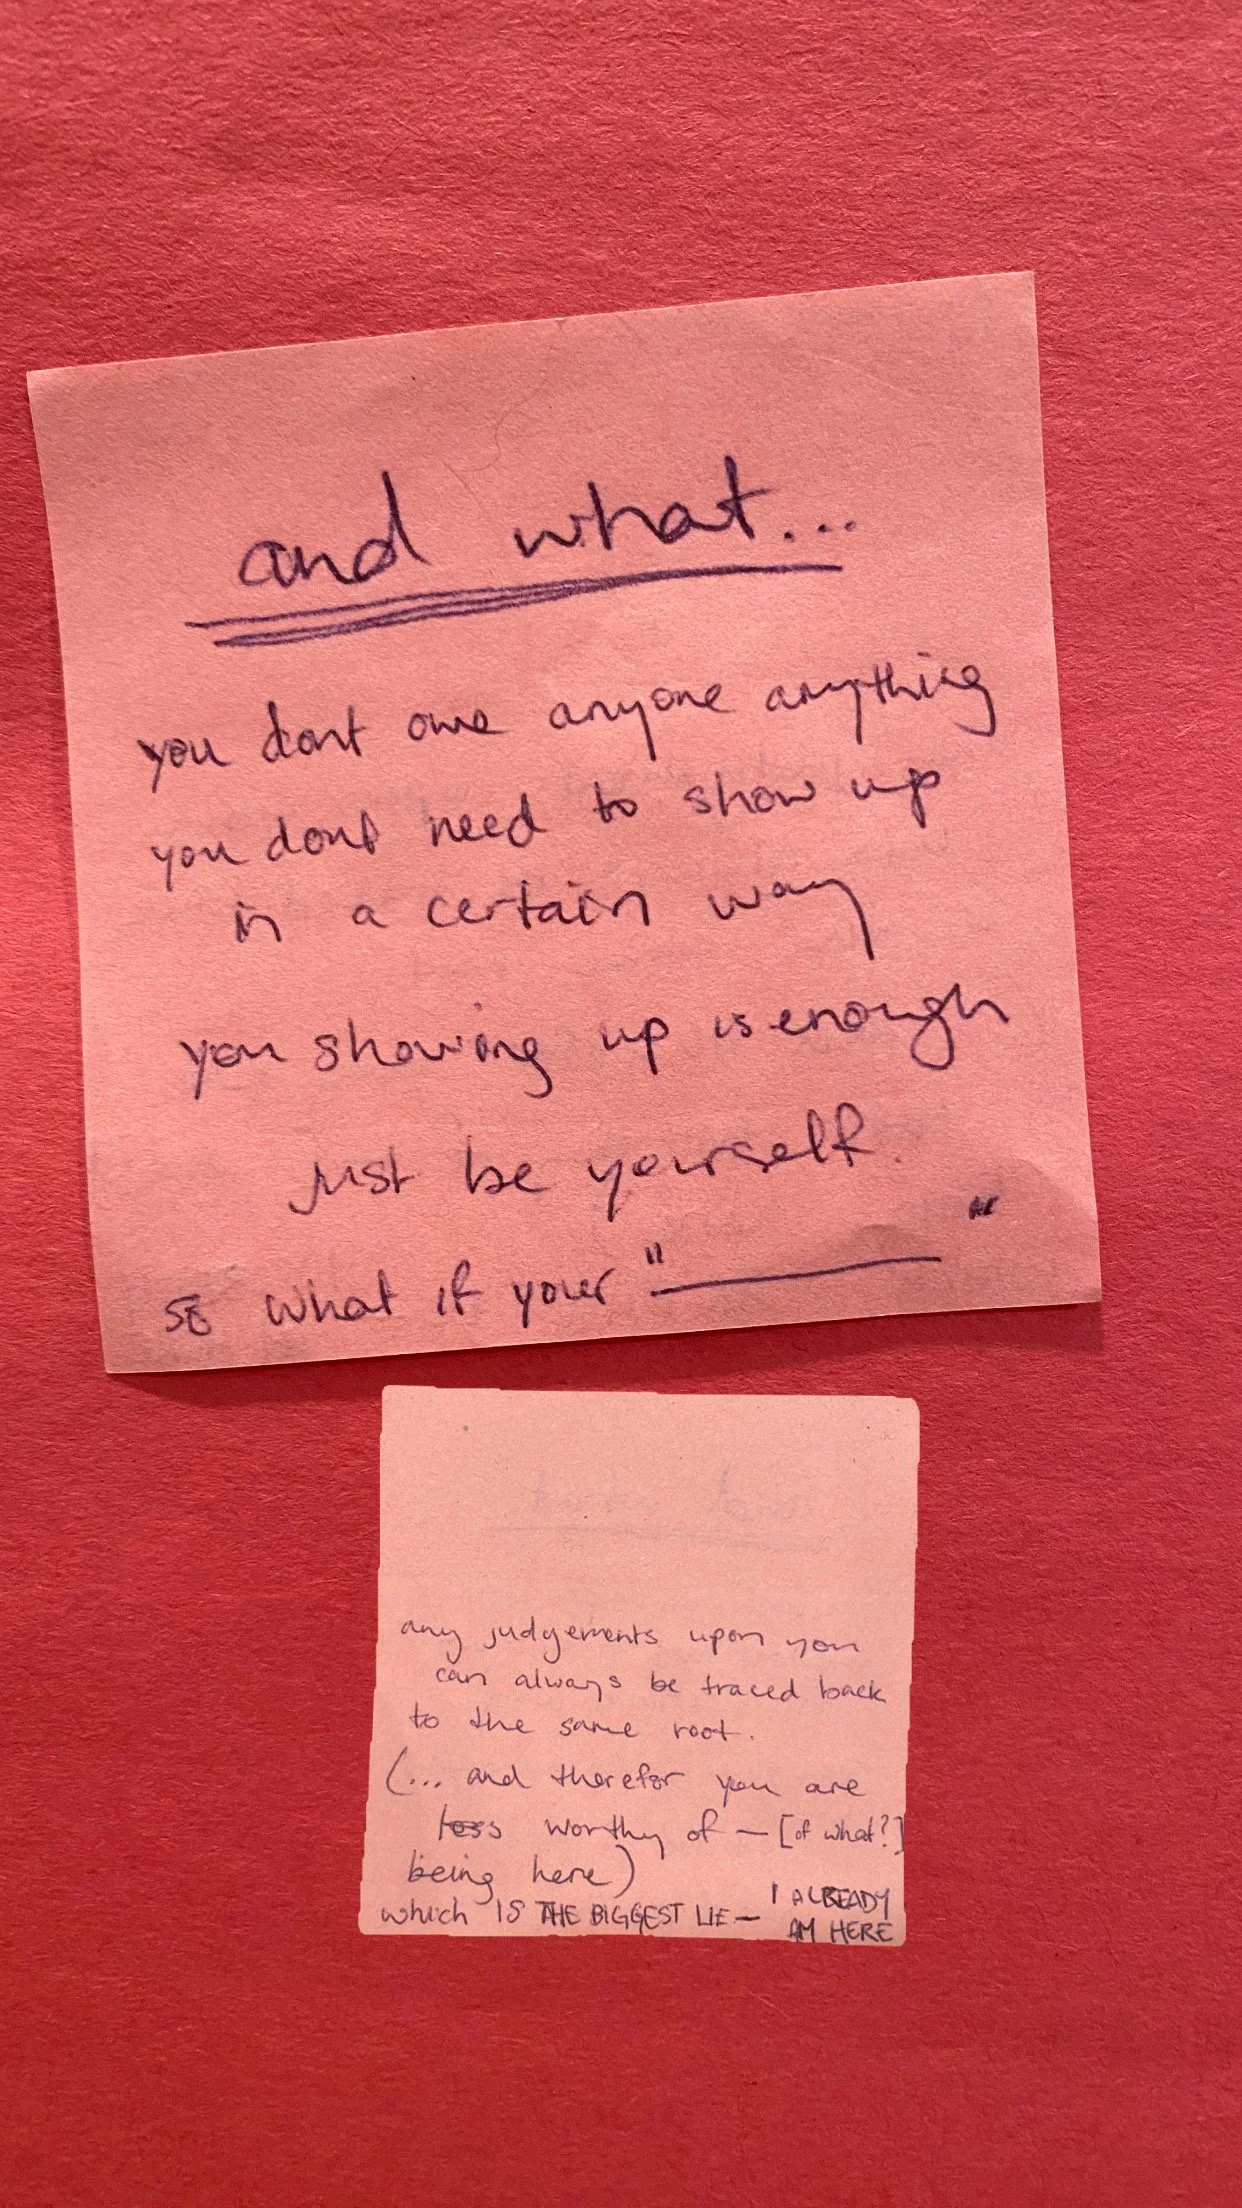 and what...
you dont owe anyone anything
you dont need to show up
in a certain way
you showing up is enough
just be yourself.
so what if your "________"
any judgements upon you
can always be traced back
to the same root.
(... and therefor you are
less worthy of — [of what?]
being here)
which IS THE BIGGEST LIE — I ALREADY
AM HERE